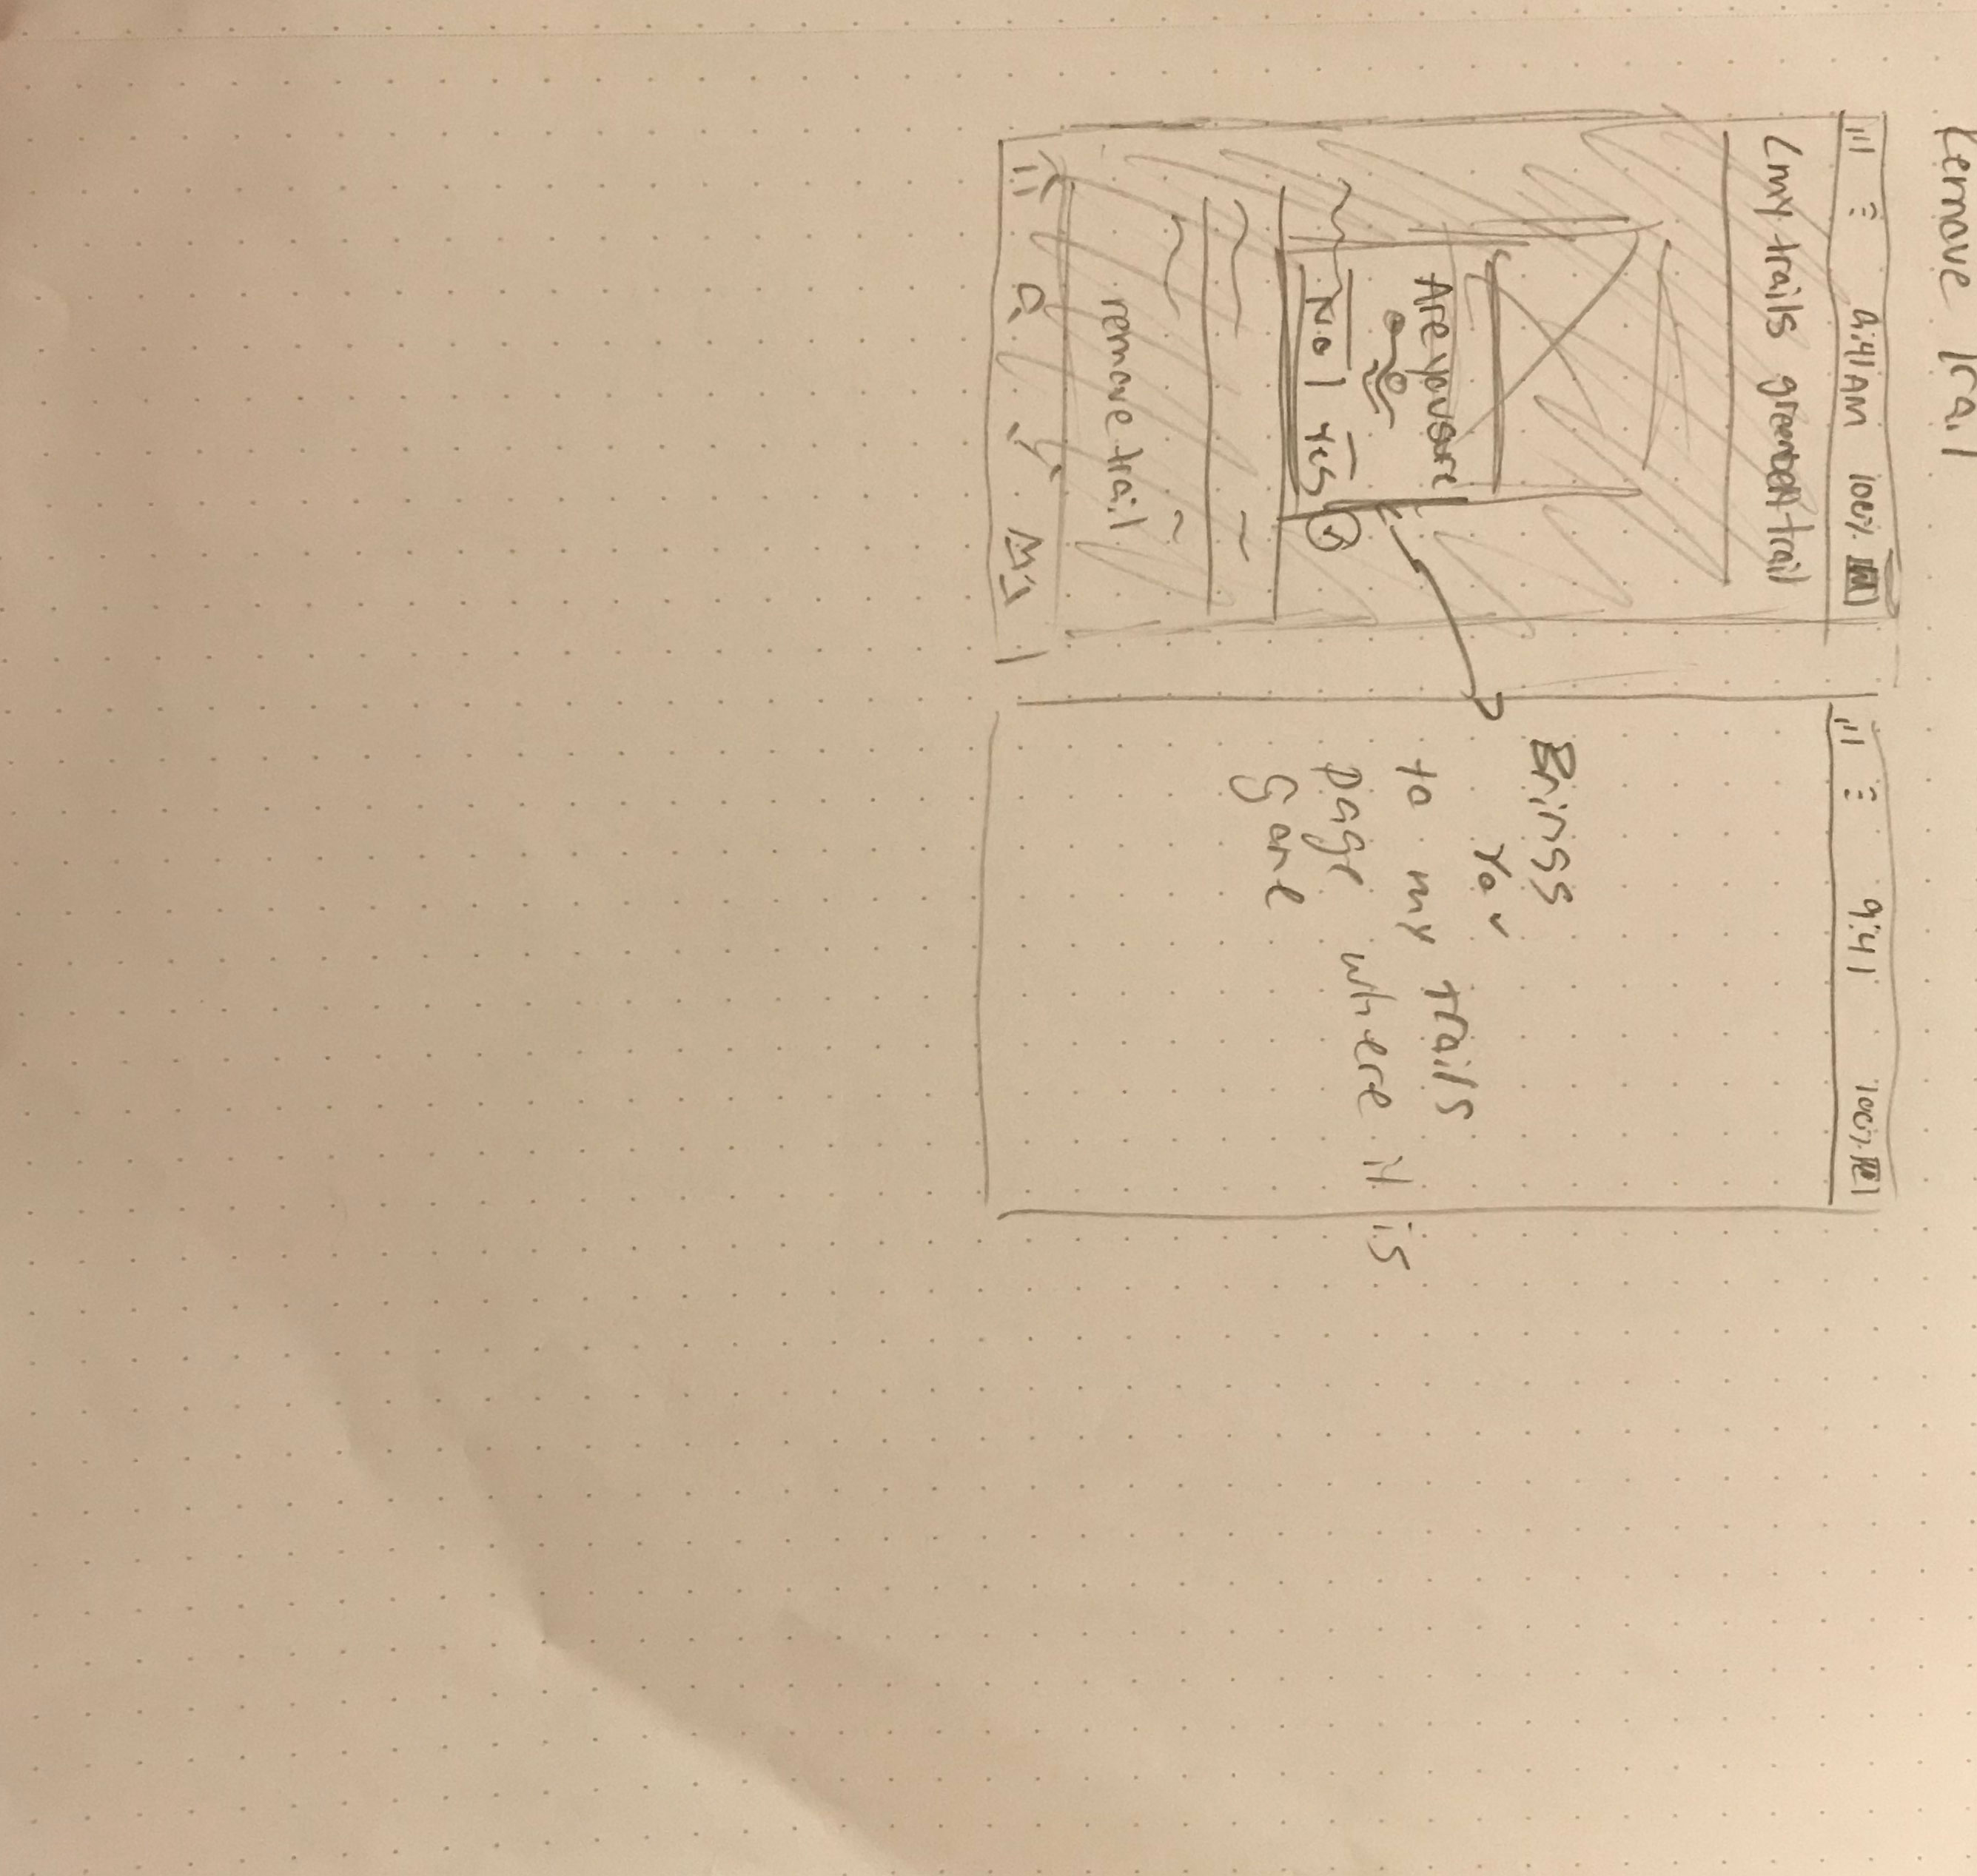 Remove Trail
9:41 AM 100%
<my trails greenbelt trail
Are you sure
No | Yes
remove trail
9:41 100%
Brings
You
to my trails
page where it is
gone